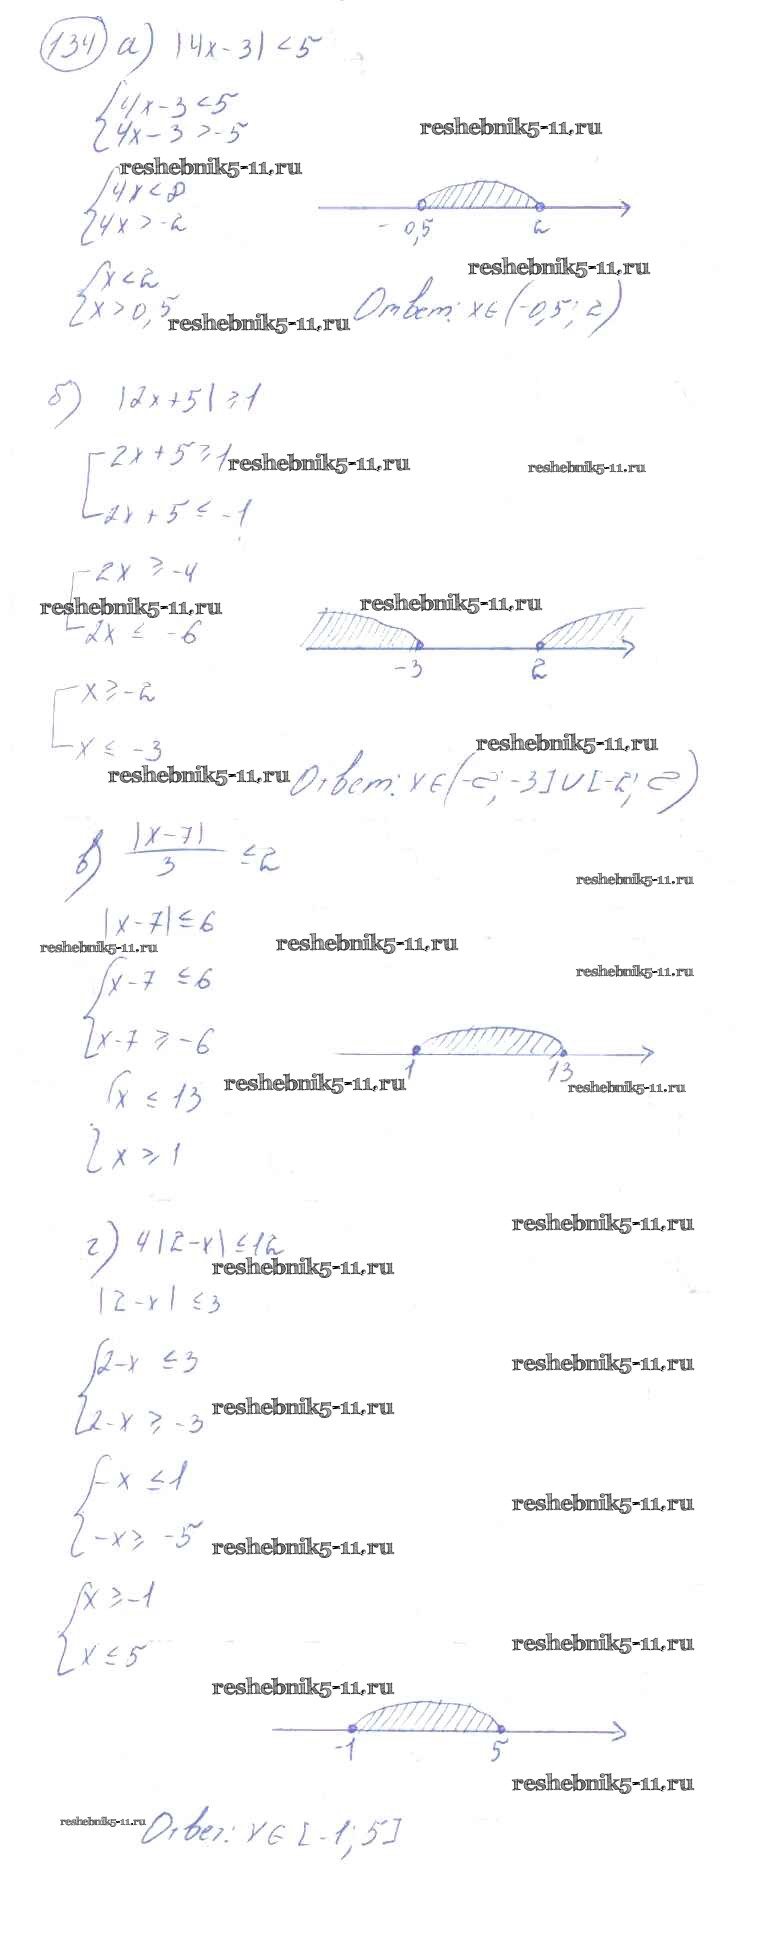 134 а) |4x-3| <5
{4x-3<5
{4x-3>-5
reshebnik5-11.ru
reshebnik5-11.ru
{4x<8
{4x>-2
-0,5 2
{x<2
{x>0,5
reshebnik5-11.ru
reshebnik5-11.ru
Ответ: x∈(-0,5; 2)
б) |2x+5|≥1
[2x+5≥1
reshebnik5-11.ru
reshebnik5-11.ru
[2x+5≤-1
[2x≥-4
reshebnik5-11.ru
reshebnik5-11.ru
[2x≤-6
-3 2
[x≥-2
[x≤-3
reshebnik5-11.ru
reshebnik5-11.ru
Ответ: x∈(-∞; -3]∪[-2; ∞)
в) |x-7|/3 ≤2
reshebnik5-11.ru
|x-7|≤6
reshebnik5-11.ru
reshebnik5-11.ru
reshebnik5-11.ru
{x-7≤6
{x-7≥-6
1 13
reshebnik5-11.ru
reshebnik5-11.ru
{x≤13
{x≥1
reshebnik5-11.ru
г) 4|2-x|≤12
reshebnik5-11.ru
|2-x|≤3
{2-x≤3
reshebnik5-11.ru
{2-x≥-3
reshebnik5-11.ru
{-x≤1
reshebnik5-11.ru
{-x≥-5
reshebnik5-11.ru
{x≥-1
{x≤5
reshebnik5-11.ru
reshebnik5-11.ru
-1 5
reshebnik5-11.ru
reshebnik5-11.ru
Ответ: x∈[-1; 5]